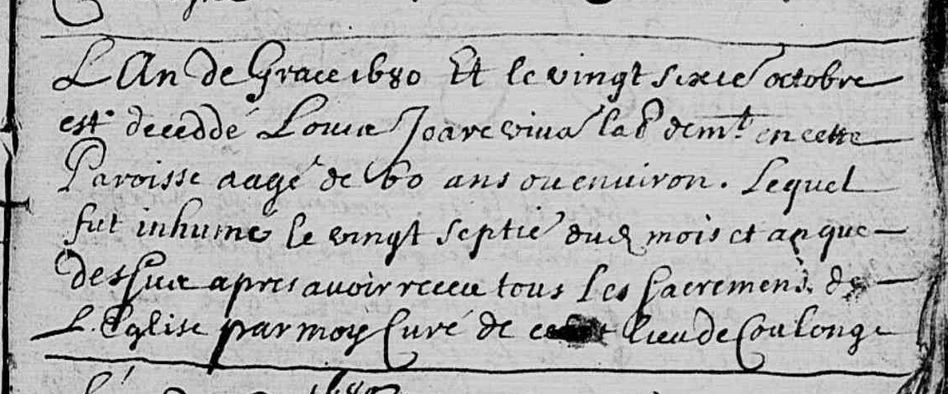 L An de Grace 1680 Et le vingt sixie octobre
est decedde Louis Joare viva lab demt en cette
Paroisse aagé de 60 ans ou environ. Lequel
fut inhumé le vingt septie dud mois et an que
dessus apres avoir receu tous les sacremens de
L. Eglise par moy Curé de ce lieu de Coulonge
1680